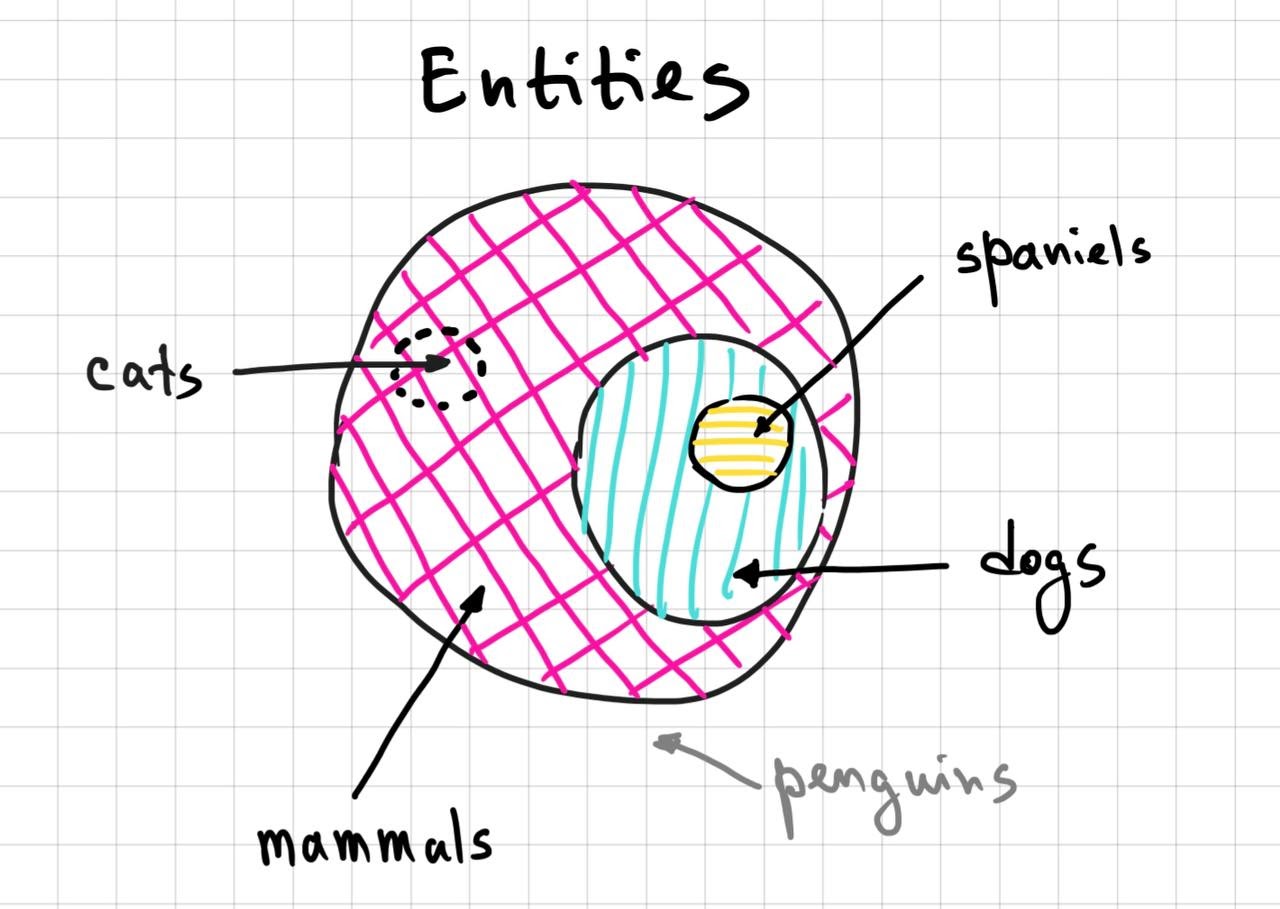 Entities
spaniels
cats
dogs
penguins
mammals